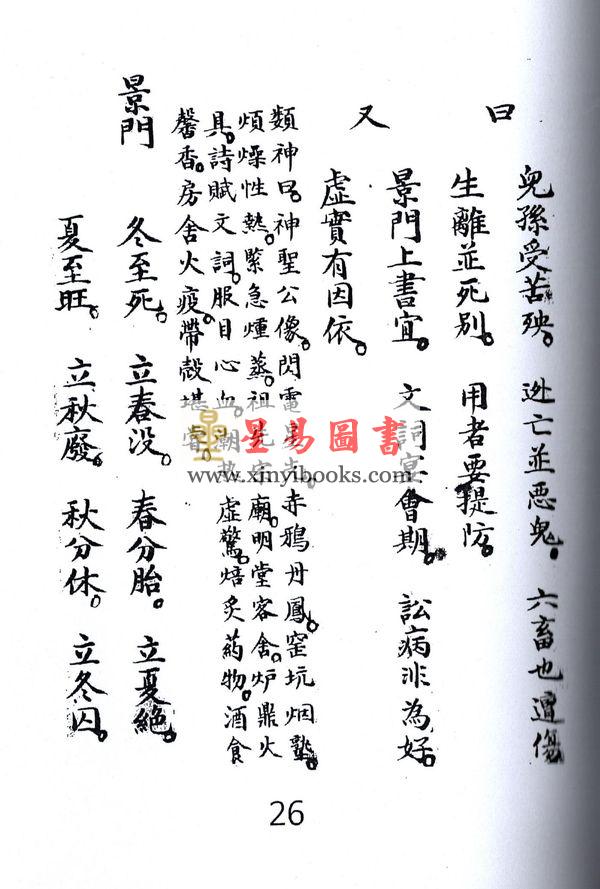 兒孫受苦殃。 逃亡並惡鬼。 六畜也遭傷
曰
生離並死別。 用者要提防。
景門上書宜。 文詞宴會期。 訟病非為好。
又
虛實有因依。
類神曰。神聖公像。閃電 赤鴉丹鳳。窑坑烟
煩燥性熱。緊急煙蒸。祖先宗廟。明堂客舍。炉鼎火
具。詩賦文詞。服目心血。潮 虛驚。焙炙药物。酒食
馨香。房舍火疫。帶殼堪嘗。
景門
冬至死。 立春没。 春分胎。 立夏絶。
夏至旺。 立秋廢。 秋分休。 立冬囚。
星易圖書
www.xinyibooks.com
26